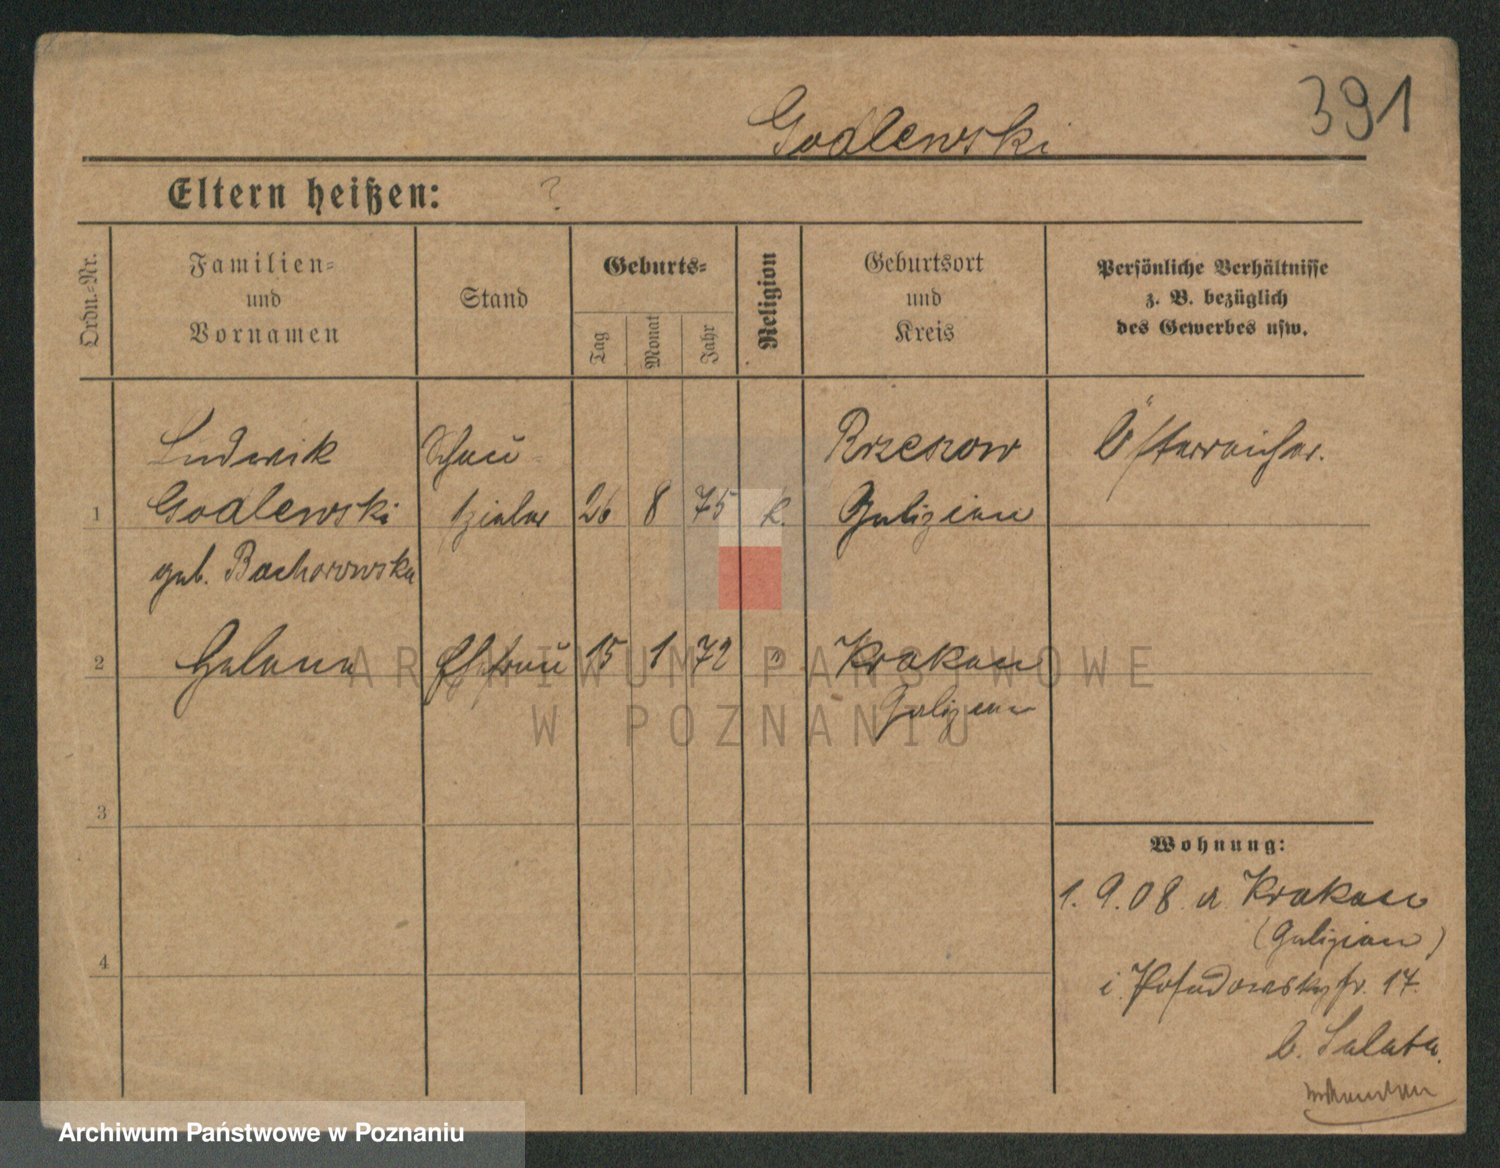 391
Godlewski
Eltern heißen: ?
Ordn.-Nr.
Familien-
und
Vornamen
Stand
Geburts-
Tag
Monat
Jahr
Religion
Geburtsort
und
Kreis
Persönliche Verhältnisse
z. B. bezüglich
des Gewerbes usw.
Ludwik Schau- Rzeszow Österreicher.
1 Godlewski spieler 26 8 75 k. Galizien
geb. Bachorowska
2 Helene Ehefrau 15 1 72 " Krakau
Galizien
3
Wohnung:
1. 9. 08. a Krakau
(Galizien)
4
i. Posadowskystr. 17.
b. Salata.
ARCHIWUM PAŃSTWOWE
W POZNANIU
Archiwum Państwowe w Poznaniu